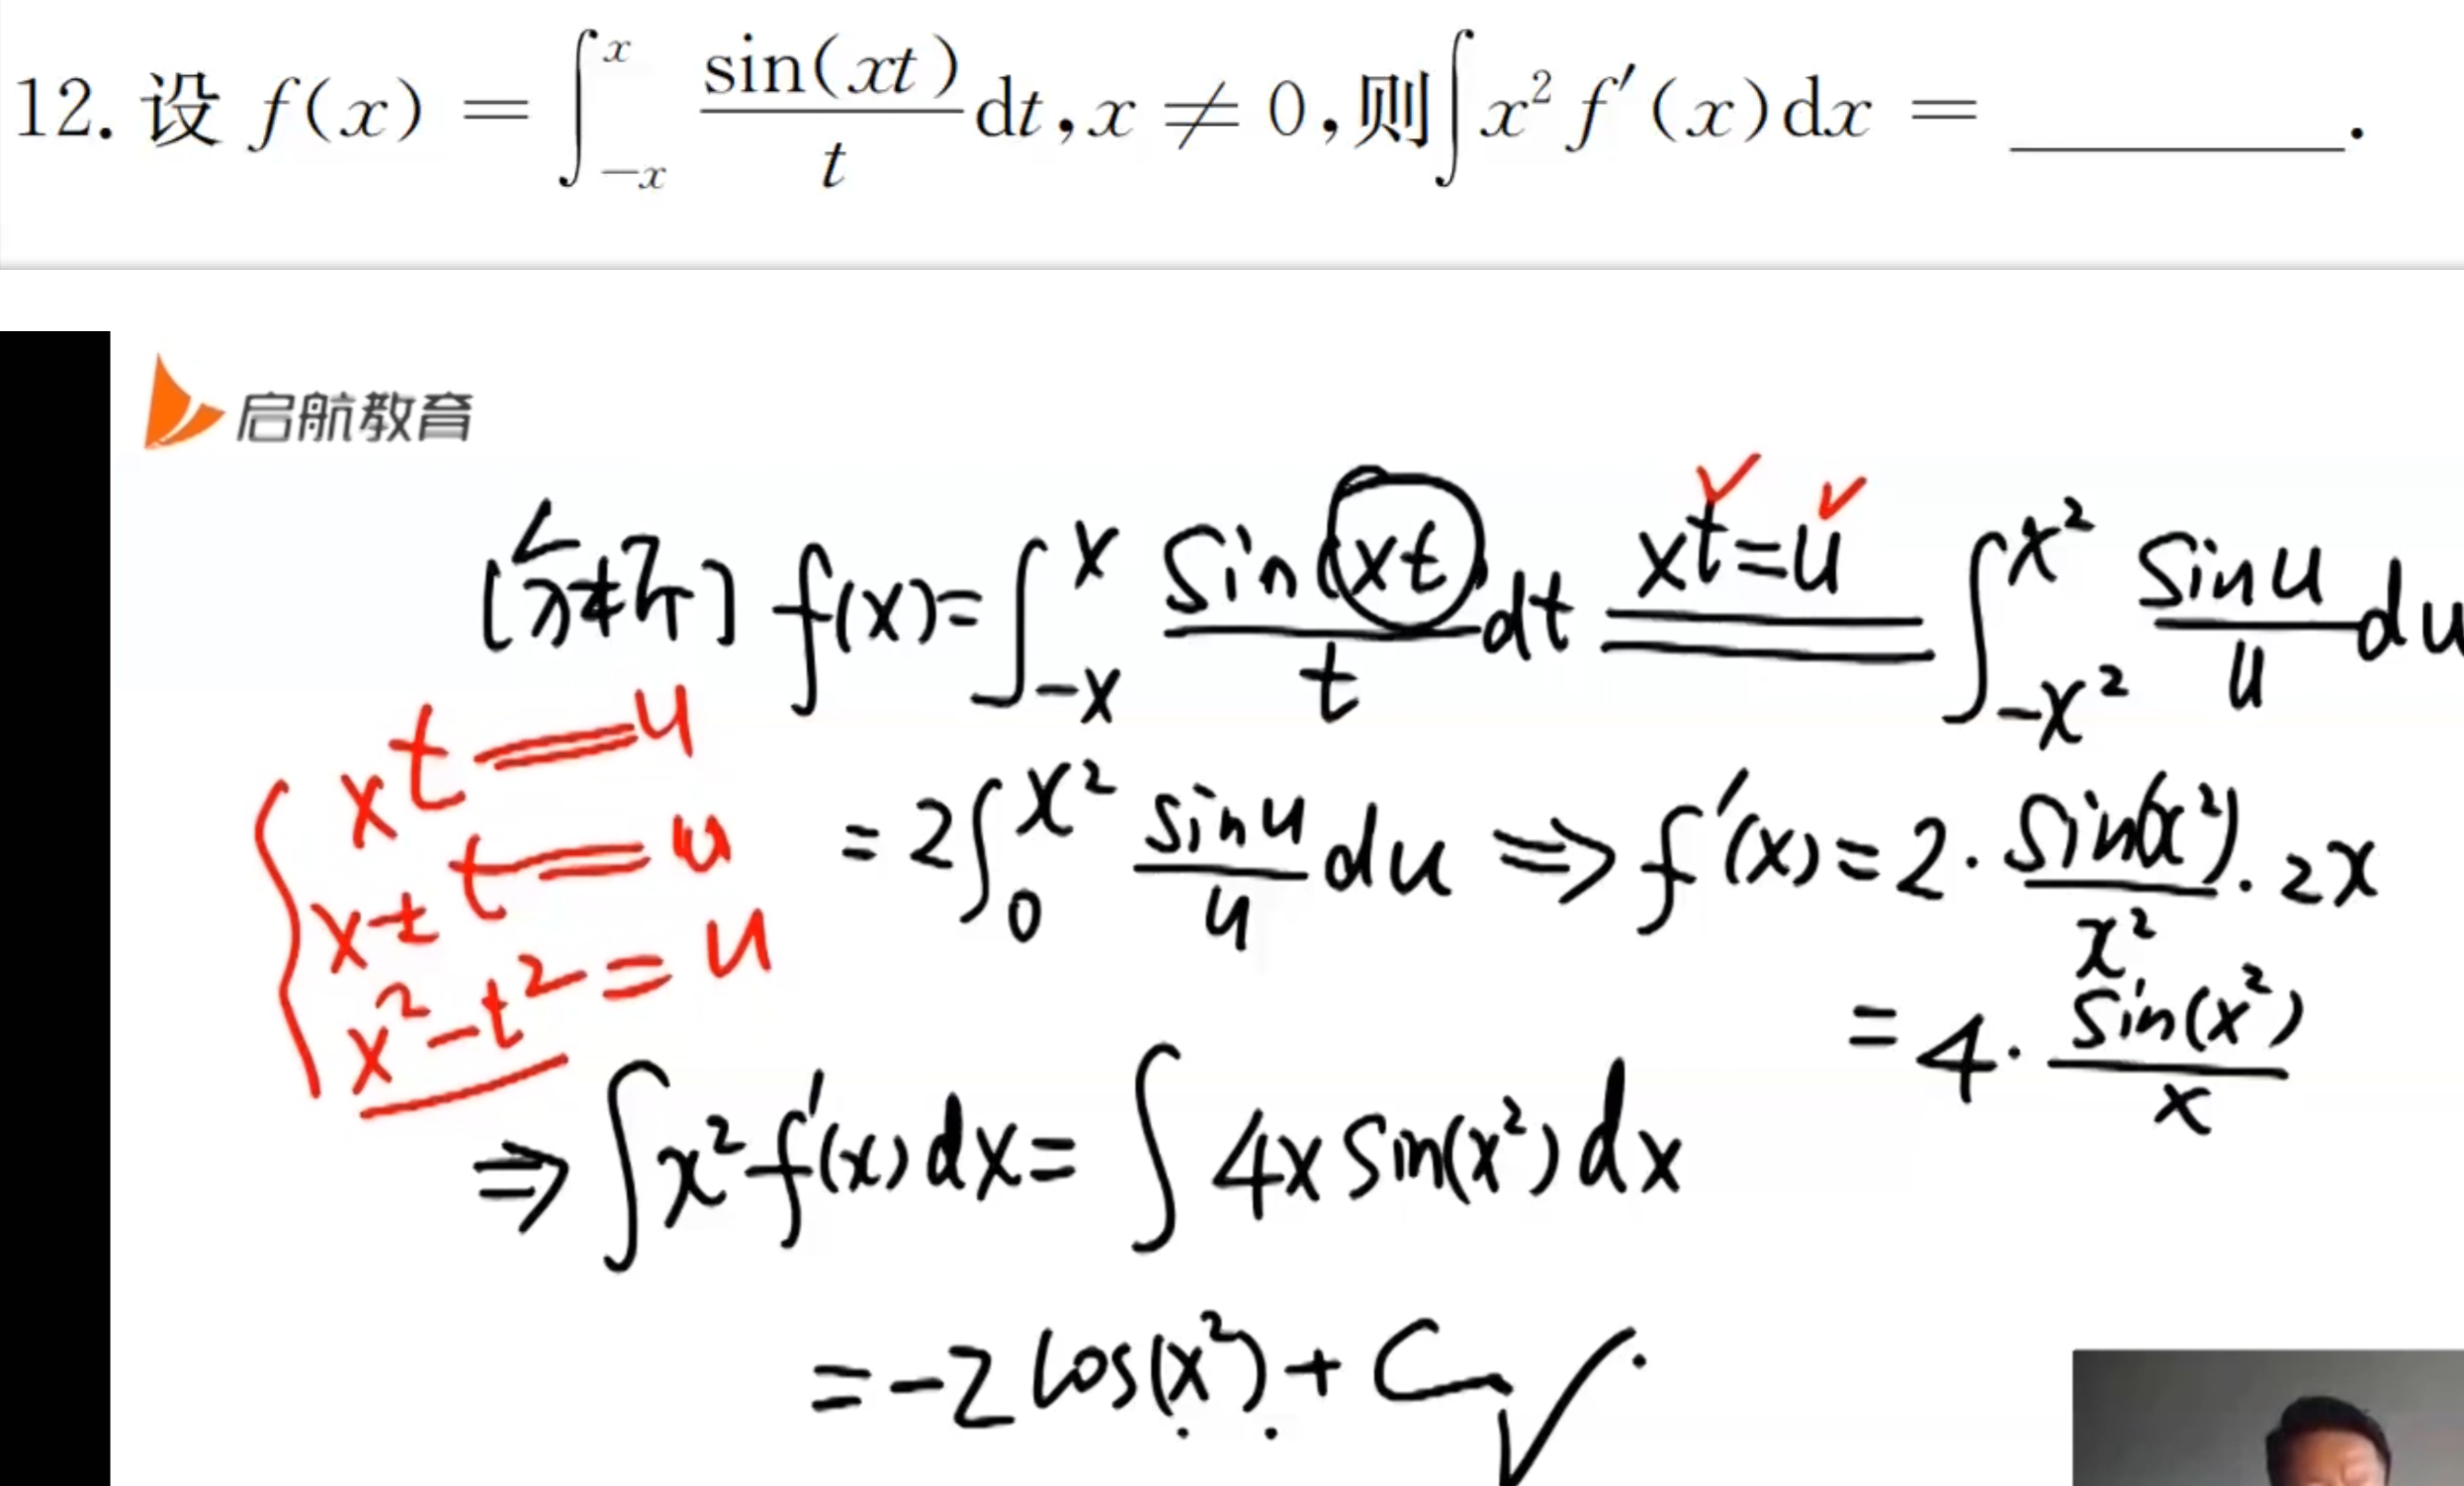 12. 设 f(x) = ∫_{-x}^{x} sin(xt)/t dt, x ≠ 0, 则∫x² f′(x)dx = ________.
启航教育
[分析] f(x) = ∫_{-x}^{x} sin(xt)/t dt xt=u ∫_{-x²}^{x²} sin u/u du
xt = u
= 2∫_{0}^{x²} sin u/u du ⇒ f′(x) = 2 · sin(x²)/x² · 2x
t = u
x-t
= 4 · sin(x²)/x
x²-t² = u
⇒ ∫x² f′(x) dx = ∫ 4x sin(x²) dx
= -2 cos(x²) + C